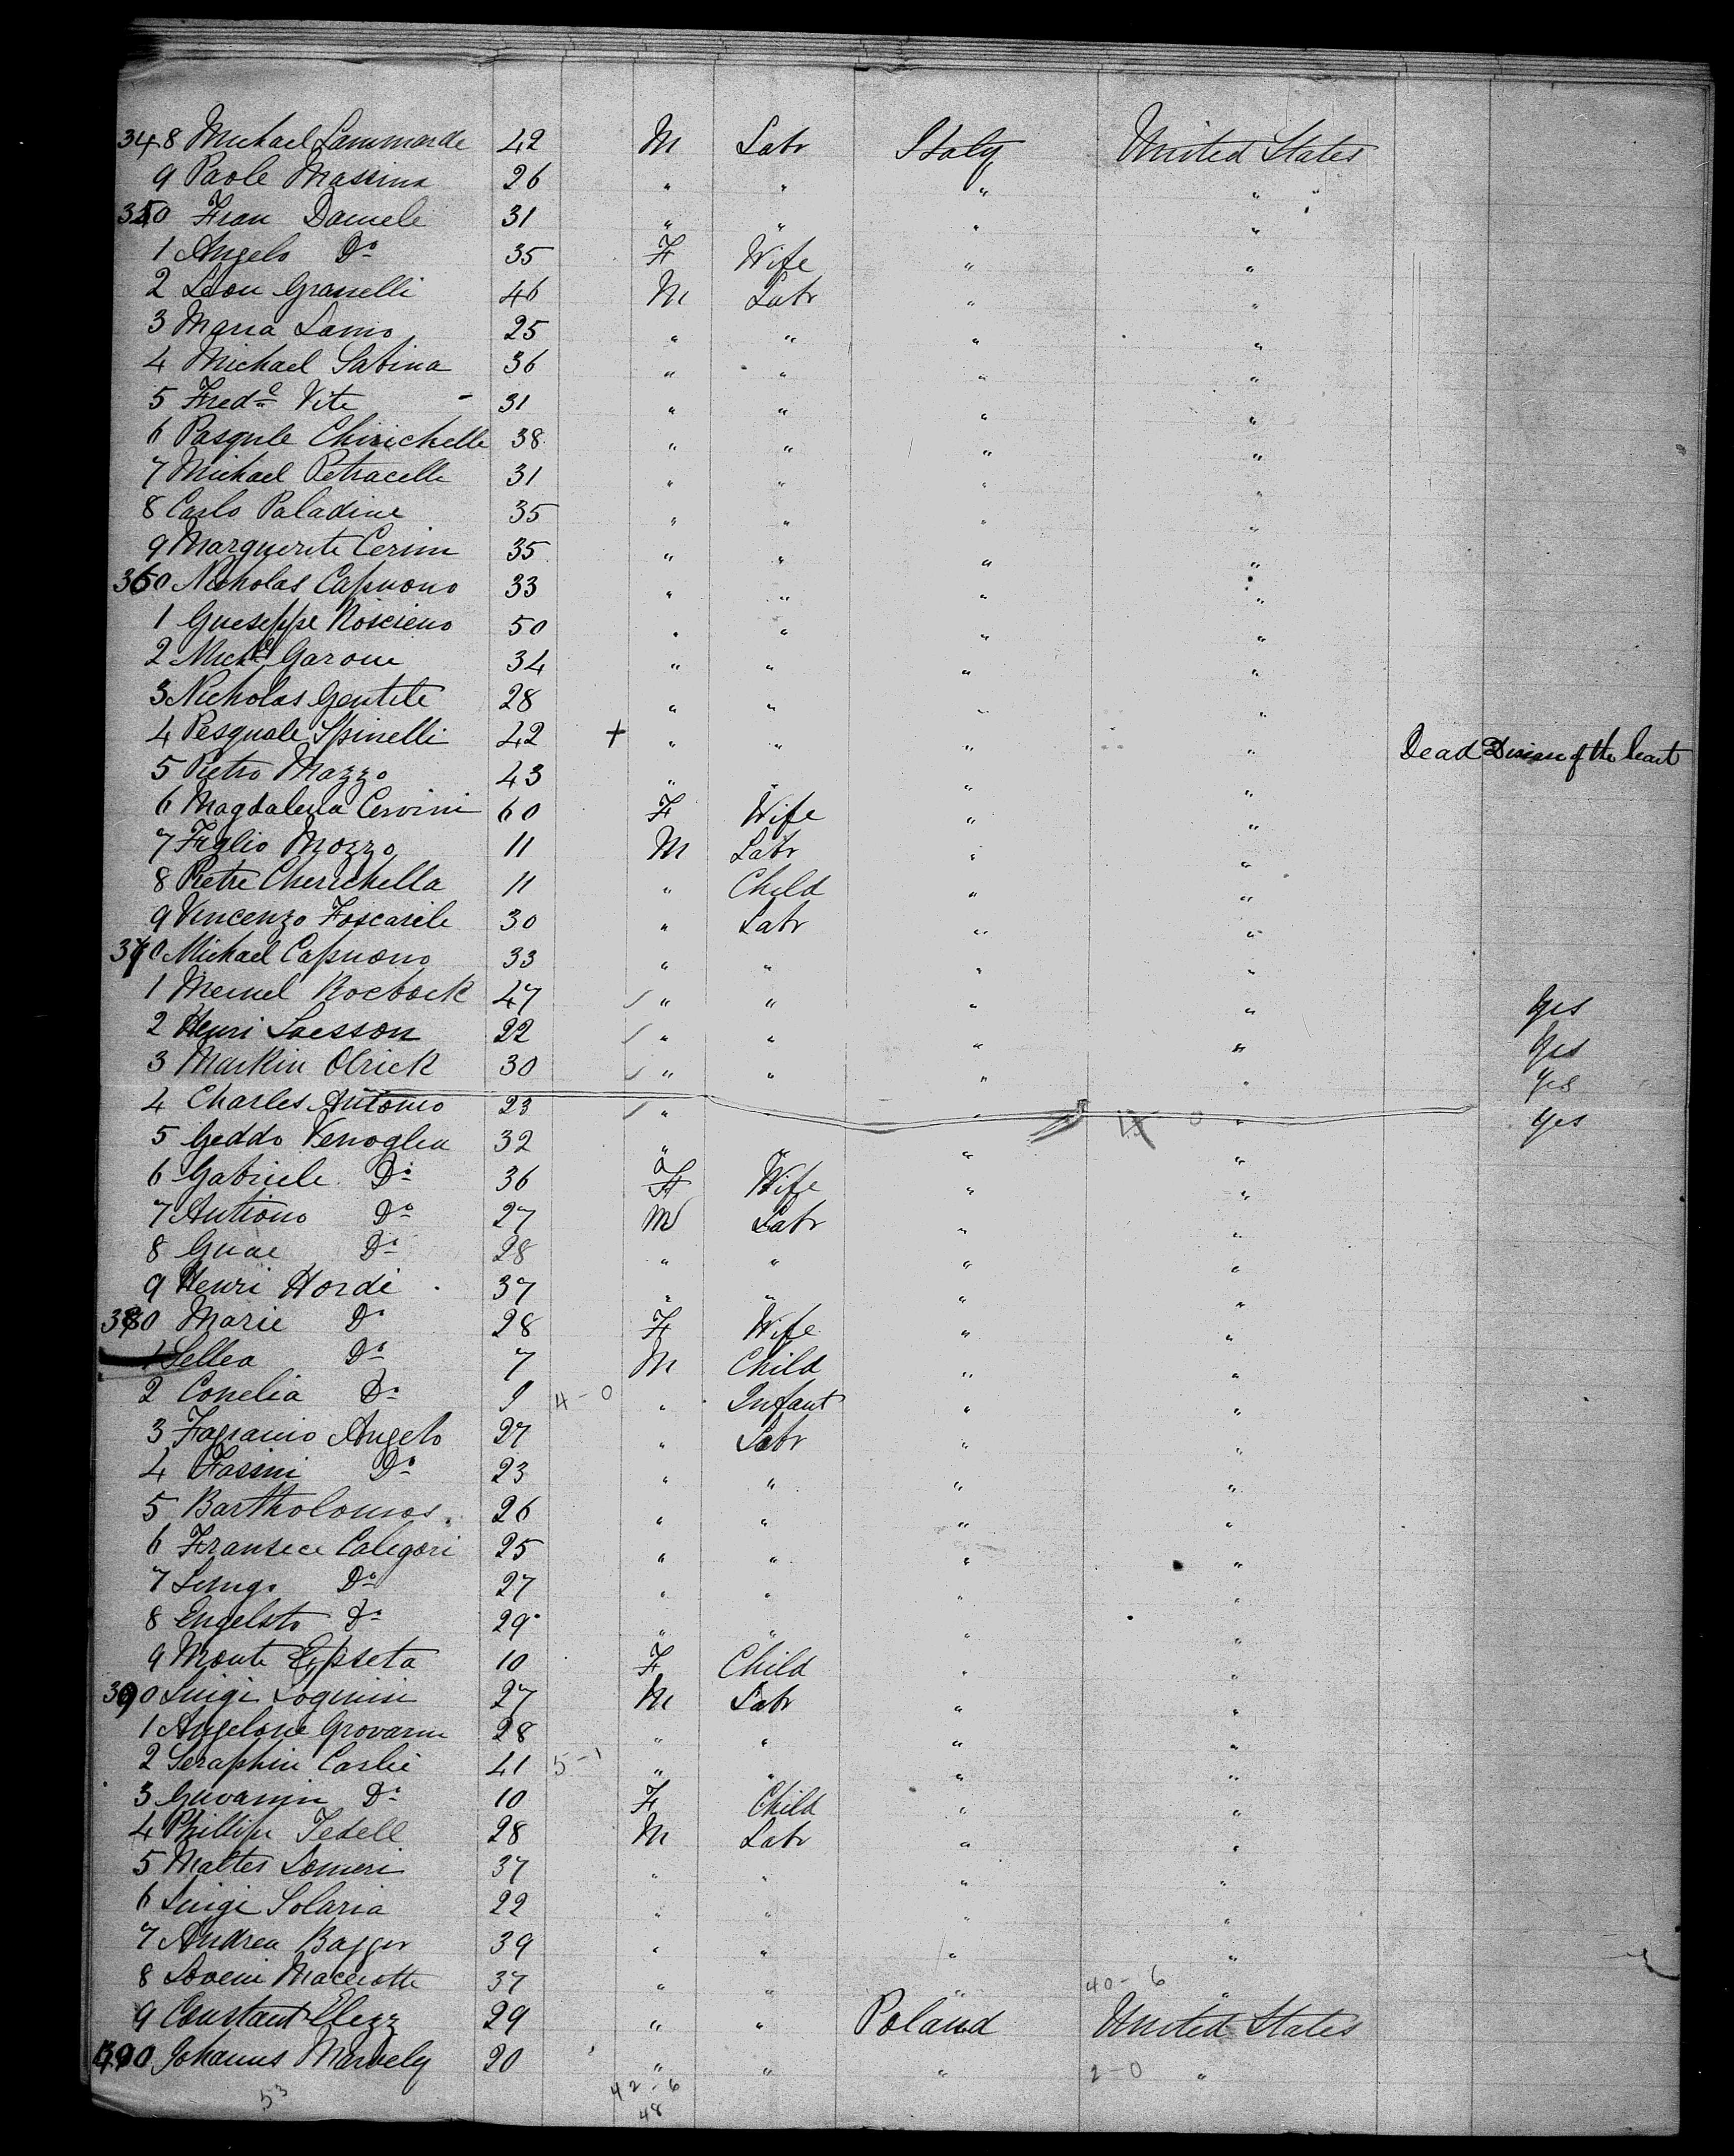 348 Michael Lammarde 42 M Labr Italy United States
9 Paole Massina 26 " " " "
350 Fran Daniele 31 " " " "
1 Angelo Do 35 F Wife " "
2 Leon Granelli 46 M Labr " "
3 Maria Lamo 25 " " " "
4 Michael Sabina 36 " " " "
5 Fredo Vite - 31 " " " "
6 Pasqule Chirichelle 38 " " " "
7 Michael Petracelle 31 " " " "
8 Carlo Paladine 35 " " " "
9 Marguerite Cerini 35 " " " "
360 Nicholas Capuono 33 " " " "
1 Gueseppe Roscieno 50 " " " "
2 Michl Garone 34 " " " "
3 Nicholas Gentile 28 " " " "
4 Pesquale Spinelli 42 + " " " " Dead Disease of the heart
5 Pietro Mazzo 43 " " " "
6 Magdalena Cervini 60 F Wife " "
7 Figlio Mozzo 11 M Labr " "
8 Pietre Cherichella 11 " Child " "
9 Vincenzo Foscarile 30 " Labr " "
370 Michael Capuono 33 " " " "
1 Meinel Rocbock 47 " " " " yes
2 Henri Sacsson 22 " " " " yes
3 Markin Olrick 30 " " " " yes
4 Charles Antonio 23 " " " " yes
5 Geddo Venoglea 32 " " " "
6 Gabriele Do 36 F Wife " "
7 Antiono Do 27 M Labr " "
8 Guae Do 28 " " " "
9 Henri Hordi 37 " " " "
380 Marie Do 28 F Wife " "
1 Sellea Do 7 M Child " "
2 Conelia Do 9 4-0 " Infant " "
3 Fagranio Angelo 27 " Labr " "
4 Fasini Do 23 " " " "
5 Bartholomos 26 " " " "
6 Fransece Caligori 25 " " " "
7 Do 27 " " " "
8 Engelsto Do 29 " " " "
9 Monte Epseta 10 F Child " "
390 Luigi Loginisi 27 M Labr " "
1 Angelone Grovanni 28 " " " "
2 Seraphin Caslie 41 5-1 " " " "
3 Guvanni Do 10 F Child " "
4 Phillipe Tedell 28 M Labr " "
5 Maltes Lomeri 37 " " " "
6 Luigi Solaria 22 " " " "
7 Andrea Bagger 39 " " " "
8 Maceiotte 37 " " " 40-6 "
9 Constant Elezz 29 " " Poland United States
Johanns Marvely 20 " " " 2-0 "
53 42-6
48